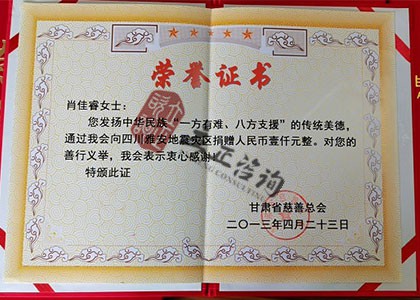 荣誉证书
肖佳睿女士：
您发扬中华民族“一方有难、八方支援”的传统美德，
通过我会向四川雅安地震灾区捐赠人民币壹仟元整。对您的
善行义举，我会表示衷心感谢！
特颁此证
甘肃省慈善总会
二〇一三年四月二十三日
正咨询
CONSULTING